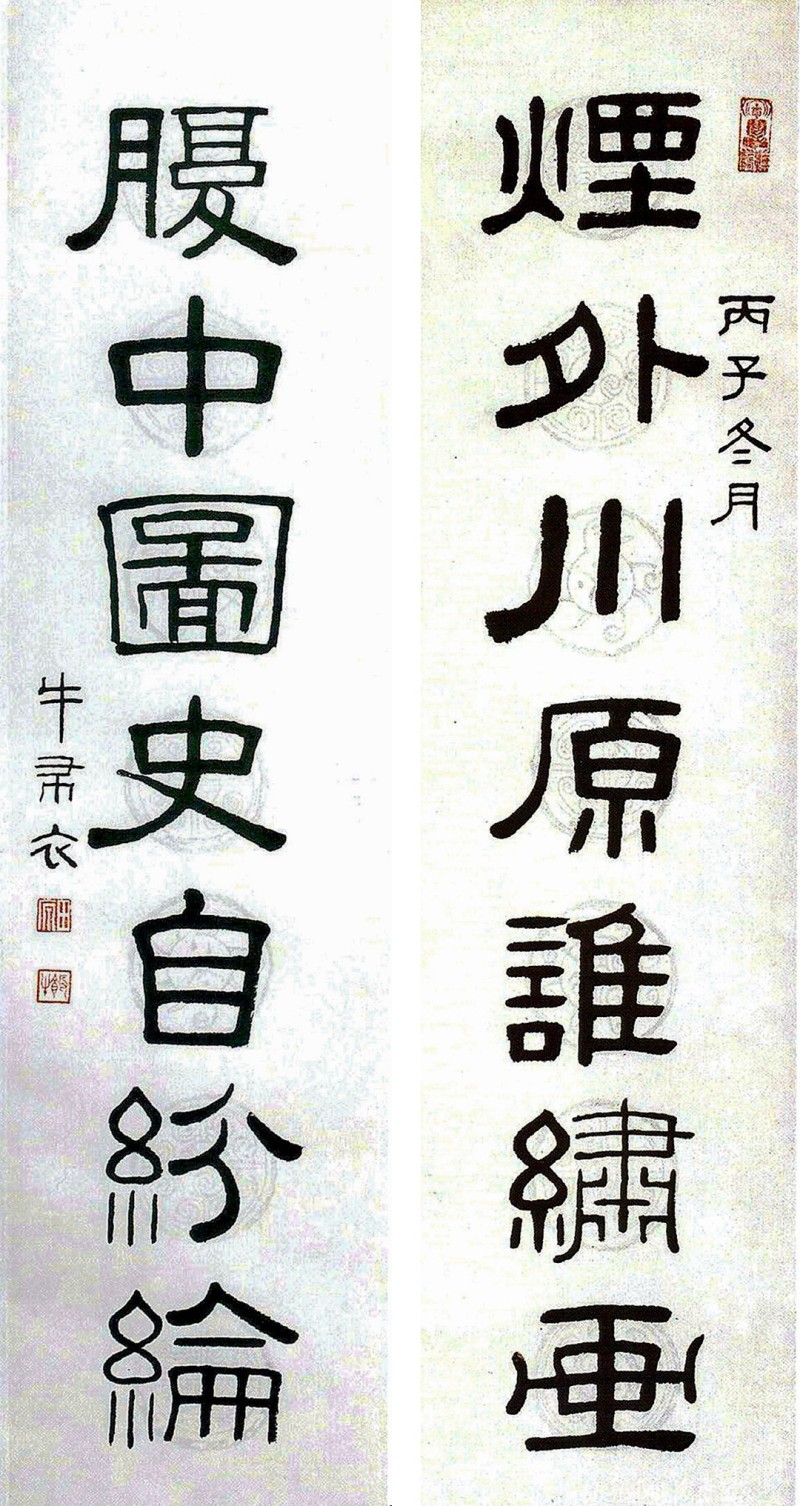 丙子冬月
煙外川原誰繡畫
腹中圖史自紛綸
牛 衣